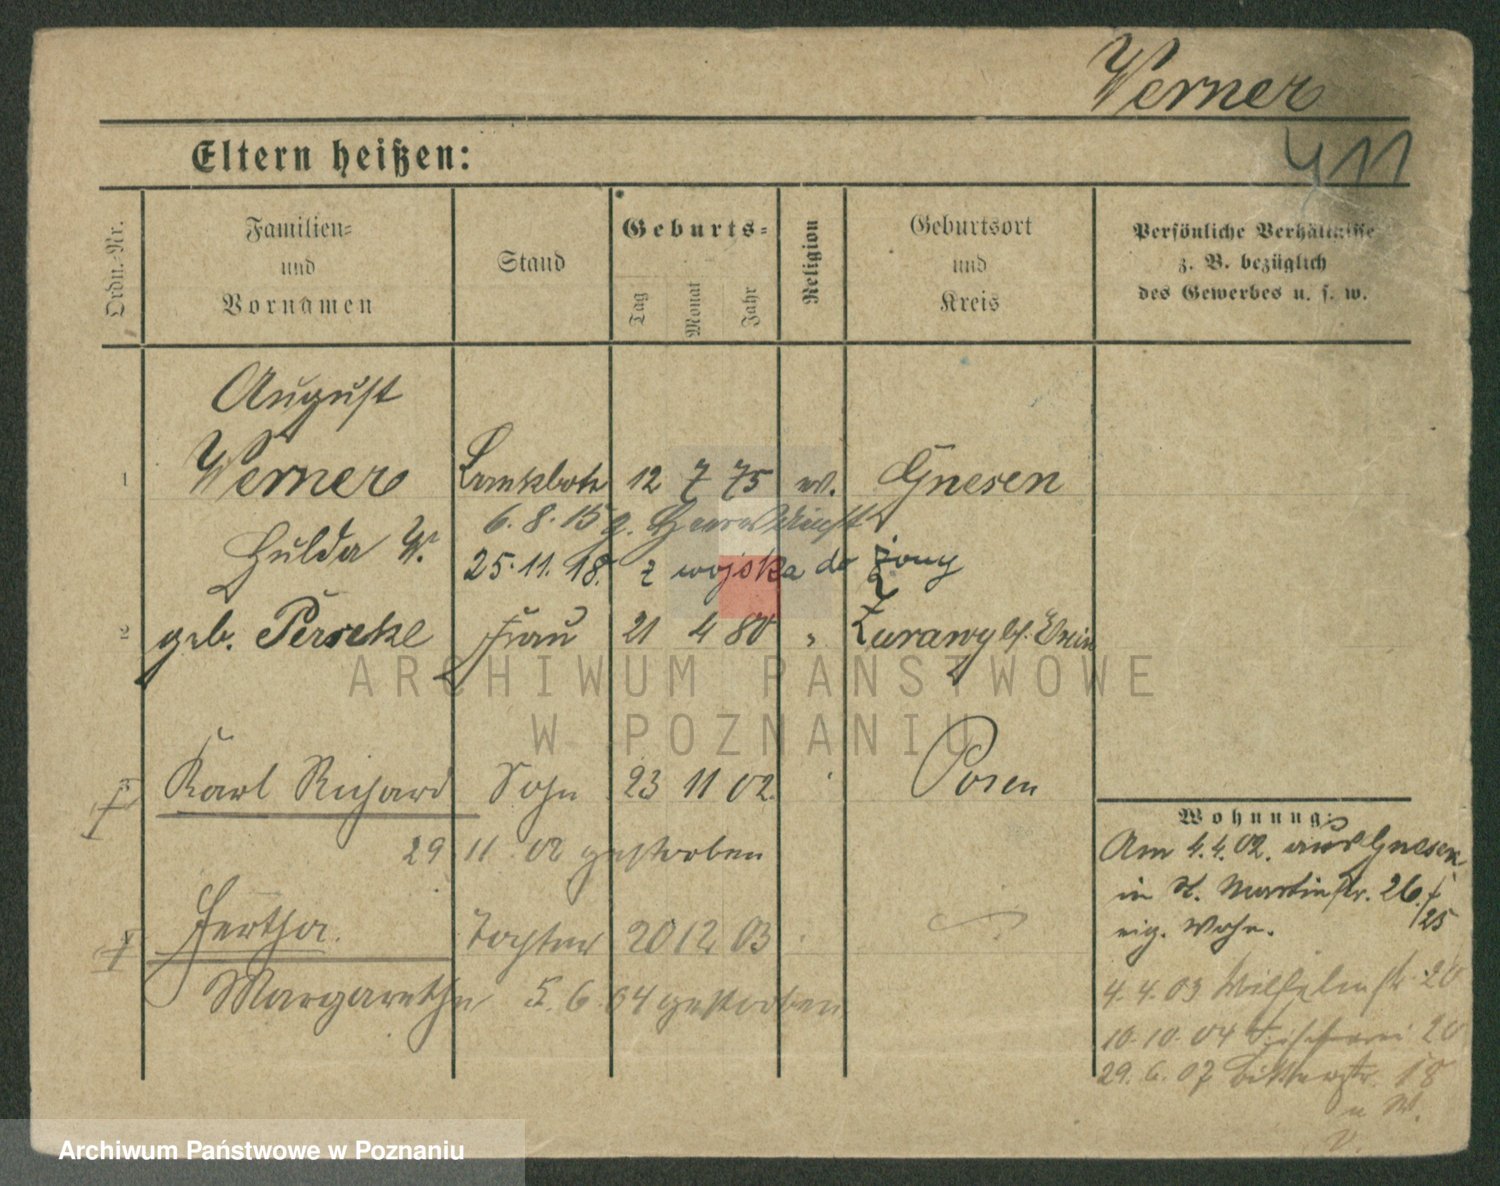 Werner
411
Eltern heißen:
Ordn.-Nr.
Familien-
und
Vornamen
Stand
Geburts-
Tag
Monat
Jahr
Religion
Geburtsort
und
Kreis
Persönliche Verhältnisse
z. B. bezüglich
des Gewerbes u. s. w.
August
1 Werner 12 7 75 Gnesen
6. 8. 15
Hulda W. 25. 11. 18. z wojska do żony
2 geb. Perscke Frau 21 4 80 " Zurawy
ARCHIWUM PAŃSTWOWE
W POZNANIU
Karl Richard Sohn 23 11 02 Posen
29 11 02 gestorben
Bertha Tochter 20 12 03
Margarethe 5. 6. 04 gestorben
Wohnung:
Am 4. 4. 02. aus Gnesen
in St. Martinstr. 26.
eig. Wohn. 25
4. 4. 03 Wilhelmstr 20
10. 10. 04 Fischerei 20
29. 6. 07 18
Archiwum Państwowe w Poznaniu